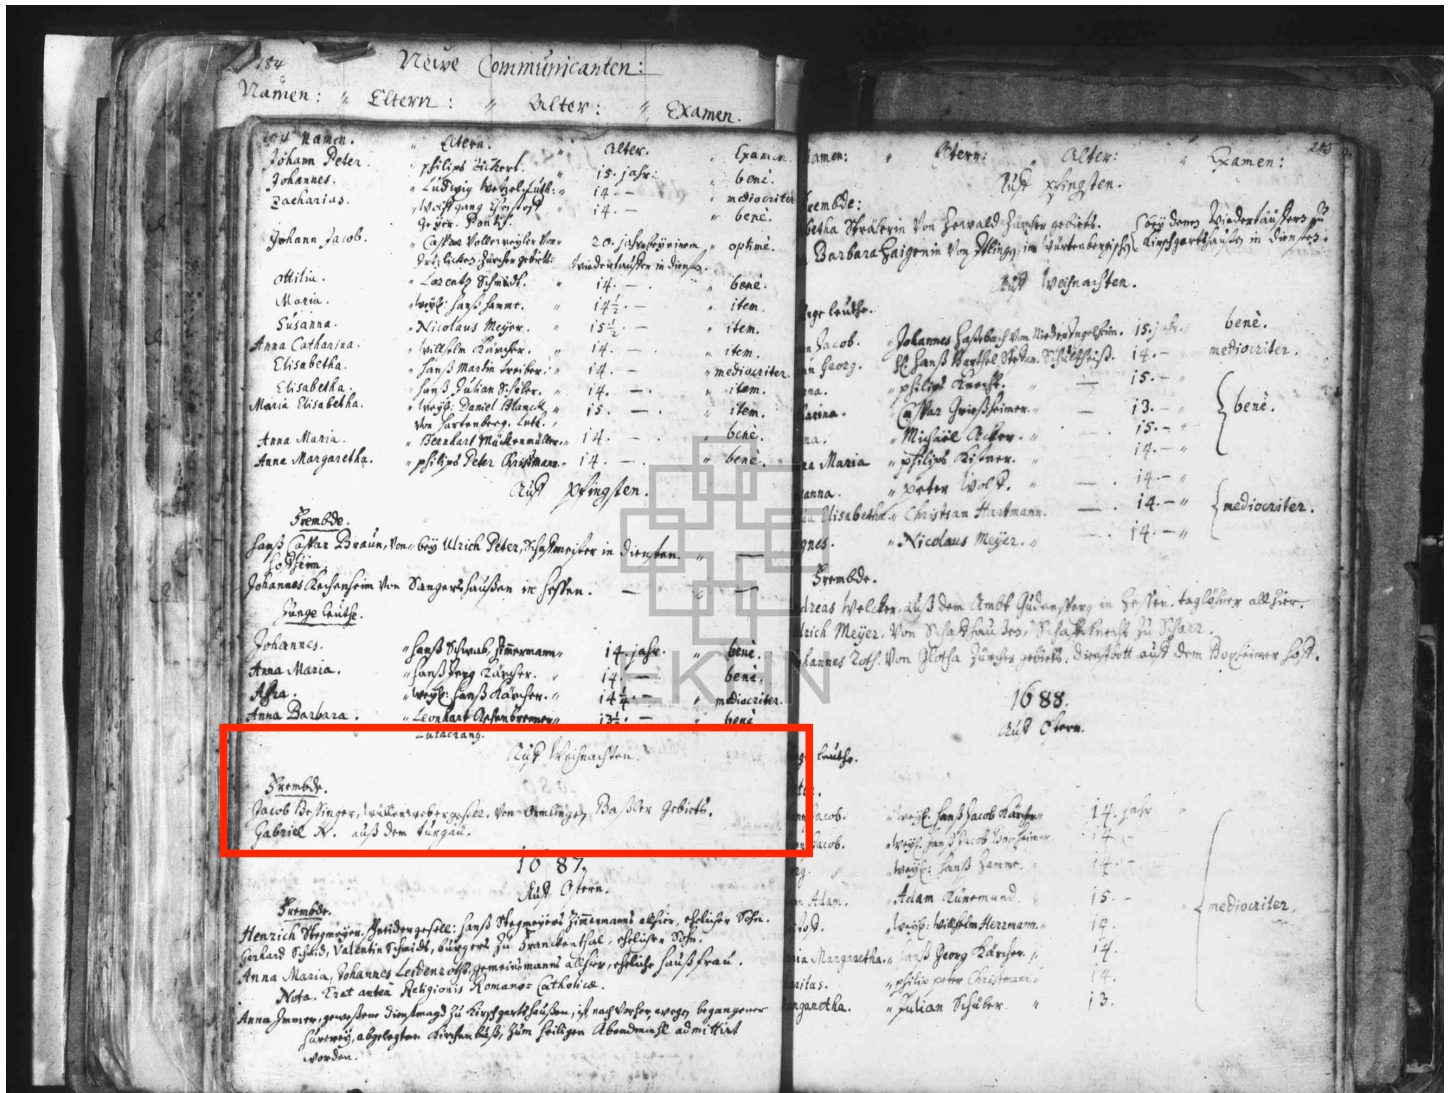 184 Newe Communicanten:
Namen: " Eltern: " Alter: " Examen.
184 Namen. " Eltern. " Alter. " Examen.
Johann Peter. " philips 15. jahr. " benè.
Johannes. " Ludwig Wetzel, Luth: " 14. — " mediocriter
Zacharias. " Wolfgang 14. — " benè.
Geyer. Pontif.
Johann Jacob. " Caspar Vollenweyler von 20. jahr, bey einem " optimè.
Zürcher gebiets. Wiedertauffer in diensten.
Ottilia. " Lorentz Schmidt. " 14. — " benè.
Maria. " weyl: Hanß Hamme. " 14½. — " item.
Susanna. " Nicolaus Meyer. " 15½. — " item.
Anna Catharina. " Willhelm Kärcher. " 14. — " item.
Elisabetha. " Hanß Martin Treiber. " 14. — " mediocriter.
Elisabetha. " Hanß Julian Schüber. " 14. — " item.
Maria Elisabetha. " weyl: Daniel Blanck, 15. — " item.
von Hartenberg. Luth.
Anna Maria. " Bernhart Mückenmüller. " 14. — " benè.
Anna Margaretha. " philips Peter Christmann. " 14. — " benè.
Auf pfingsten.
Frembde.
Hanß Caspar Braun, von bey Ulrich Peter, in diensten. " —
Hofheim
Johannes von Sangershaußen in Hessen. — " —
Junge leuthe.
Johannes. " Hanß Schwab, Zimmermann " 14. jahr. " benè.
Anna Maria. " Hanß Jerg Kärcher. " 14. — " benè.
Afra. " weyl: Hanß Kärcher. " 14¼. — " mediocriter.
Anna Barbara. " Leonhart " 13½. — " benè
Lutherang.
Auf Weihnachten.
Frembde.
Jacob Bessinger, wüllenwebergesell, von Ormlingen, Baßler Gebiets.
Gabriel N. auß dem Turgau.
1687.
Auf Ostern.
Frembde.
Henrich Stegmeyer, Hanß Stegmeyers Zimmermanns allhier, ehelicher Sohn.
Gerhard Schmid, Valentin Schmidts, burgers zu Franckenthal, ehelicher Sohn.
Anna Maria, Johannes Leidenroths, gemeinsmanns allhier, eheliche haußfrau.
Nota. Erat anteà Religionis Romano-Catholicæ.
Anna Immer, geweßene dienstmagd zu Kirschgartshaußen, ist nach vorher, wegen begangener
Hurerey, abgelegter Kirchenbuß, zum heiligen Abendmahl admittirt
worden.
amen: " Eltern: " Alter: " Examen: 285
Auf pfingsten.
rembde:
betha Strälerin von Zürcher gebiets. bey denen Wiedertäuffern zu
Barbara Haigenin von im Würtenbergischen Kirschgartshaußen in diensten.
Auf Weihnachten.
nge leuthe.
n Jacob. " Johannes Haßbach von Nieder Ingelheim. 15. jahr. benè.
n Georg. Hanß Barthel Schultheiß. 14. — mediocriter.
na. " philips Knecht. — 15. — "
arina. " Caspar Grießheimer. " — 13. — " benè.
na. " Michäel Acker. " 15. — "
na Maria " philips Kißner. 14. — "
anna. " peter Wolf. " — . 14. — "
ia Elisabetha. " Christian Hartmann. — . 14. — " mediocriter.
gnes. " Nicolaus Meyer. " — . 14. — "
Frembde.
dreas Welcker, auß dem Ambt Gudensperg in Hessen. taglöhner allhier.
lrich Meyer, von Schafhaußen, Schafknecht zu Scharr.
hannes Roth. Von Glotha Zürcher gebiets, dienstbott auf dem Bopheimer hoff.
1688.
Auf Ostern.
nge leuthe.
nn Jacob. " weyl: Hanß Jacob Kärcher 14. jahr "
n Jacob. " weyl: Hanß Jacob Bopheimer. 14. —
rg. " weyl: Hanß Hamme. " 14. —
n Adam. " Adam Künemund. " 15. — mediocriter.
" weyl: Willhelm Herrmann. " 14.
ria Margaretha. " Hanß Georg Kärcher. " 14.
aritas. " philip peter Christmann. " 14.
argaretha. " Julian Schüber. " 13.
EKHN